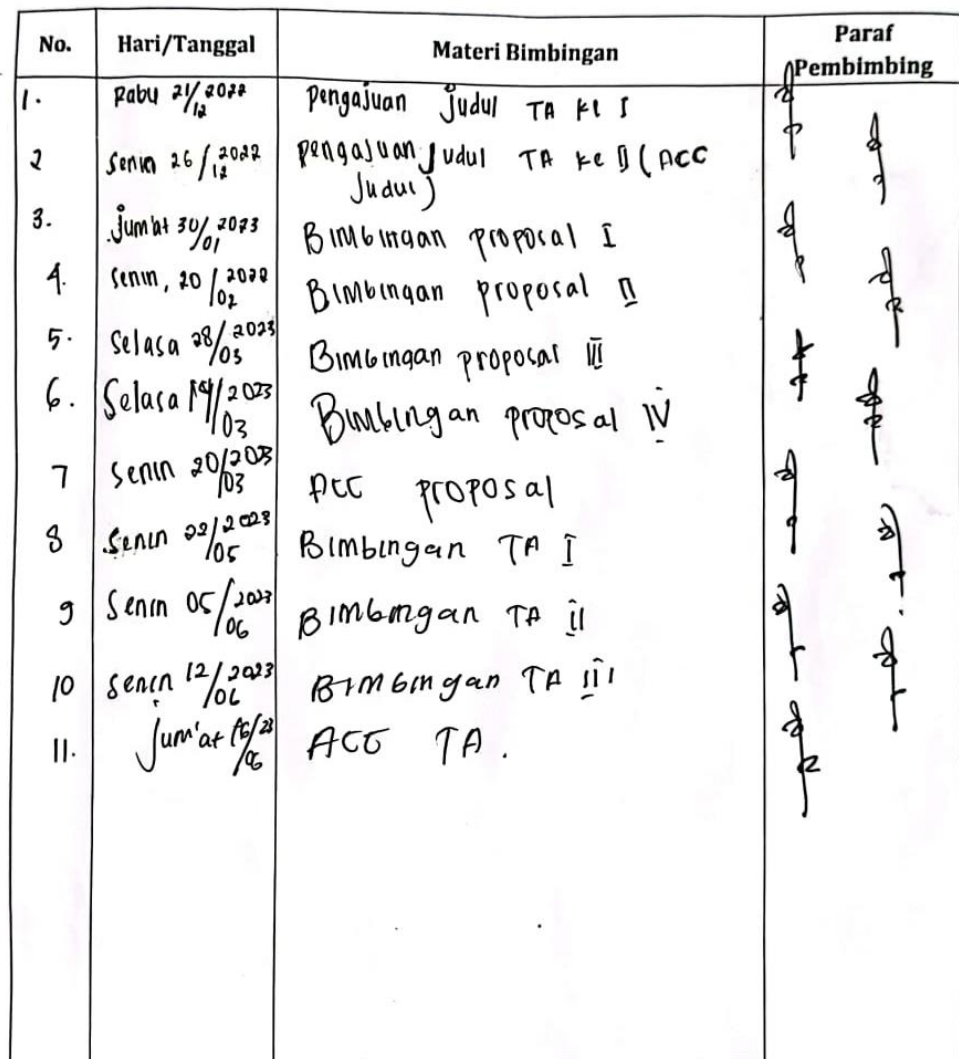 No. Hari/Tanggal Materi Bimbingan Paraf Pembimbing
1. Rabu 21/12 2022 Pengajuan Judul TA ke I
2 Senin 26/12 2022 Pengajuan Judul TA ke II (ACC
Judul)
3. Jum'at 30/01 2023 Bimbingan Proposal I
4. Senin, 20/02 2022 Bimbingan Proposal II
5. Selasa 28/03 2023 Bimbingan Proposal III
6. Selasa /03 2023 Bimbingan Proposal IV
7 Senin 20/03 2023 Acc Proposal
8 Senin 22/05 2023 Bimbingan TA I
9 Senin 05/06 2023 Bimbingan TA II
10 Senin 12/06 2023 Bimbingan TA III
11. Jum'at 16/06 23 ACC TA.